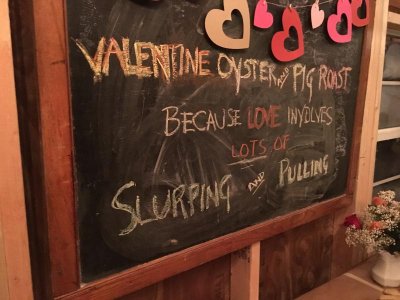 VALENTINE OYSTER and PIG ROAST
BECAUSE LOVE INVOLVES
LOTS OF
SLURPING AND PULLING